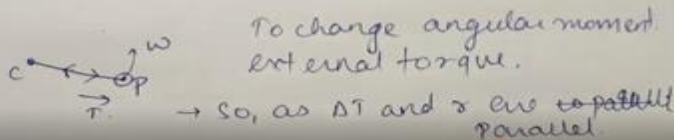 To change angular moment.
external torque.
C
ω
P
T
→ So, as ΔT and r are parallel